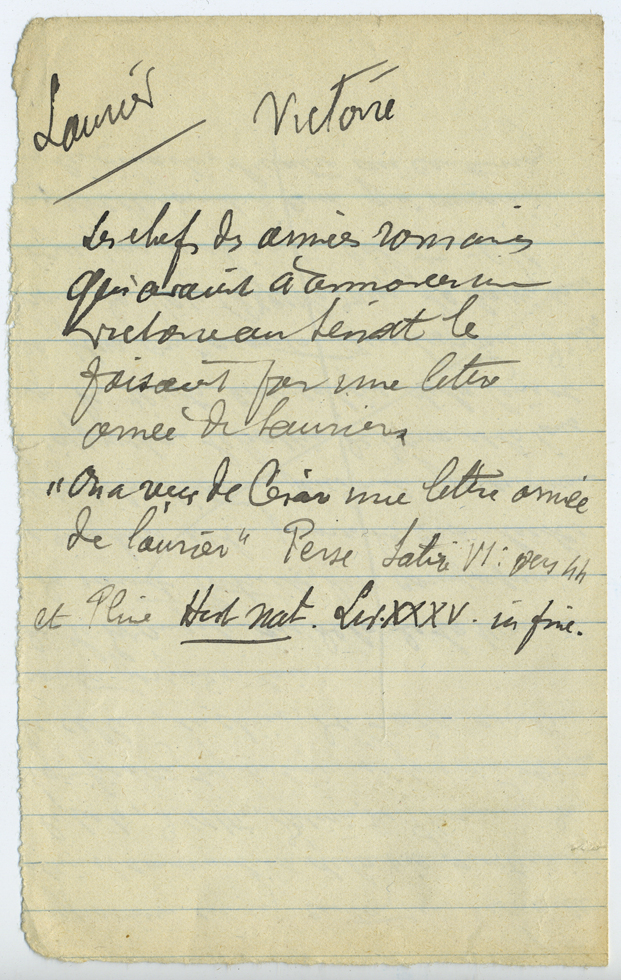 Laurier
Victoire
Les chefs des armées romaines
qui avaient à annoncer une
victoire au Sénat le
faisaient par une lettre
ornée de lauriers
"On a reçu de César une lettre ornée
de laurier" Perse Satire VI: vers 44
et Pline Hist nat. Liv. XXXV. in fine.